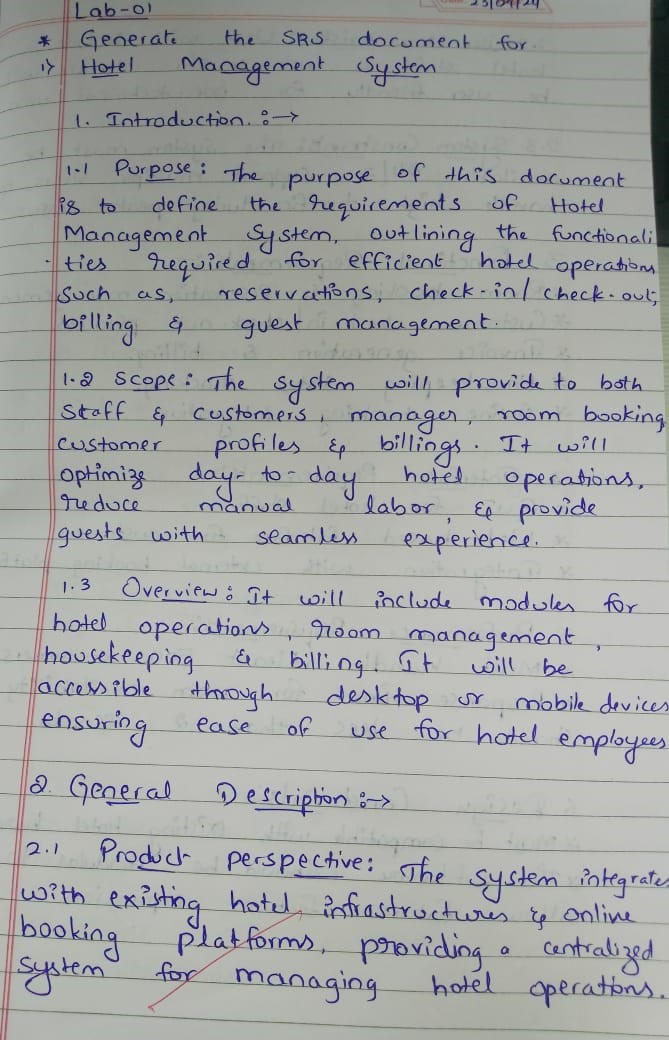 Lab-01
* Generate the SRS document for
1) Hotel Management System
1. Introduction. :→
1.1 Purpose: The purpose of this document
is to define the requirements of Hotel
Management System, outlining the functionali
- ties required for efficient hotel operations
such as, reservations, check-in/check-out,
billing & guest management.
1.2 Scope: The system will provide to both
staff & customers, manager, room booking
customer profiles & billings. It will
optimize day-to-day hotel operations,
reduce manual labor, & provide
guests with seamless experience.
1.3 Overview: It will include modules for
hotel operations, room management,
housekeeping & billing. It will be
accessible through desktop or mobile devices
ensuring ease of use for hotel employees
2. General Description :→
2.1 Product perspective: The system integrates
with existing hotel infrastructures & online
booking platforms, providing a centralized
system for managing hotel operations.